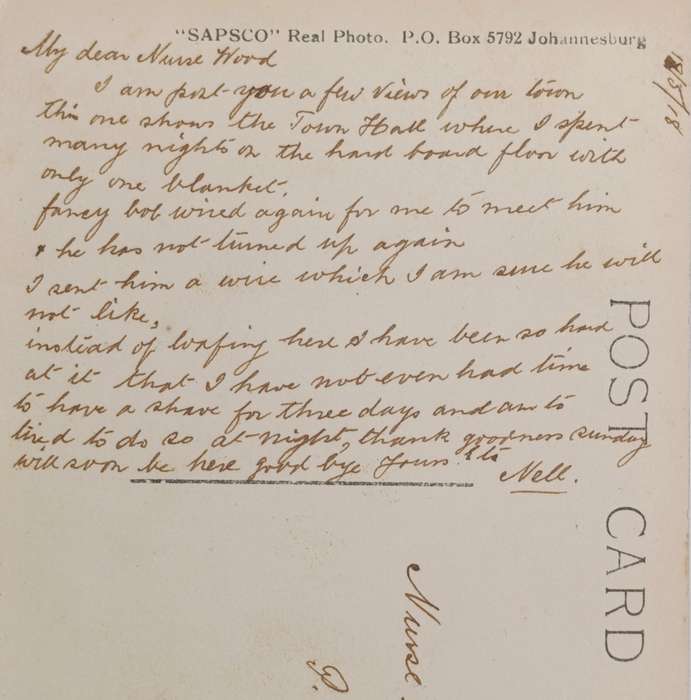 "SAPSCO" Real Photo. P.O. Box 5792 Johannesburg
My dear Nurse Wood
I am post you a few views of our town
this one shows the Town Hall where I spent
many nights on the hard board floor with
only one blanket.
fancy bob wired again for me to meet him
& he has not turned up again
I sent him a wire which I am sure he will
not like,
instead of loafing here I have been so hard
at it that I have not even had time
to have a shave for three days and am to
tired to do so at night, thank goodness sunday
will soon be here good bye Yours
Nell.
POST CARD
Nurse
P.